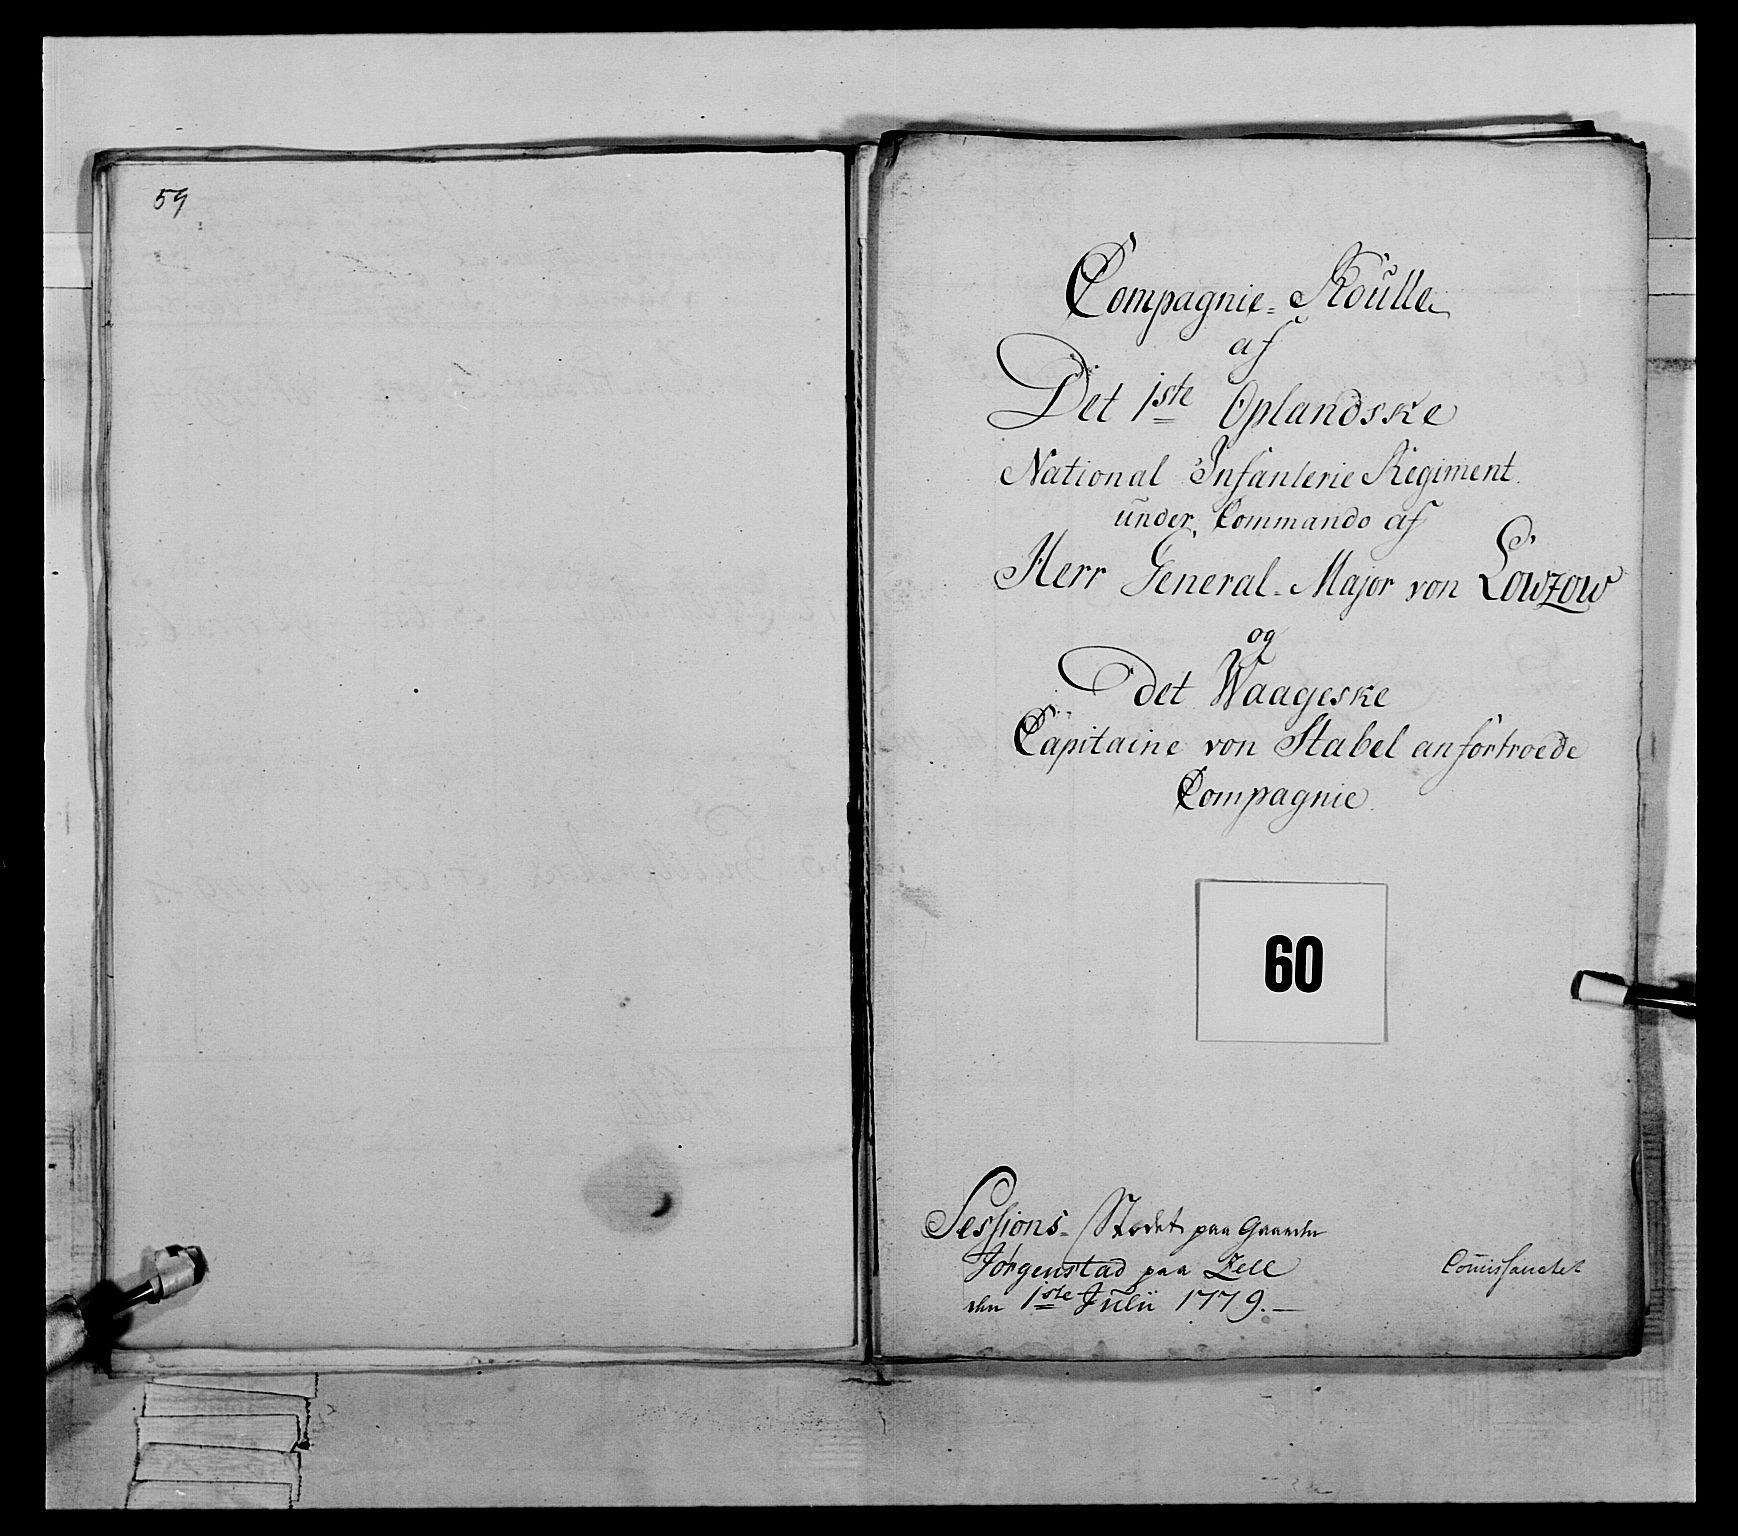 59
Compagnie=Roulle
af
Det 1ste Oplandske
National Infanterie Regiment.
under Commando af
Herr General-Major von Lowzow
og
det Waageske
Capitaine von Stabel anfortroede
Compagnie.
60
Sessions=Stedet paa Gaarden
Jørgenstad paa Zell
den 1ste Julii 1779.